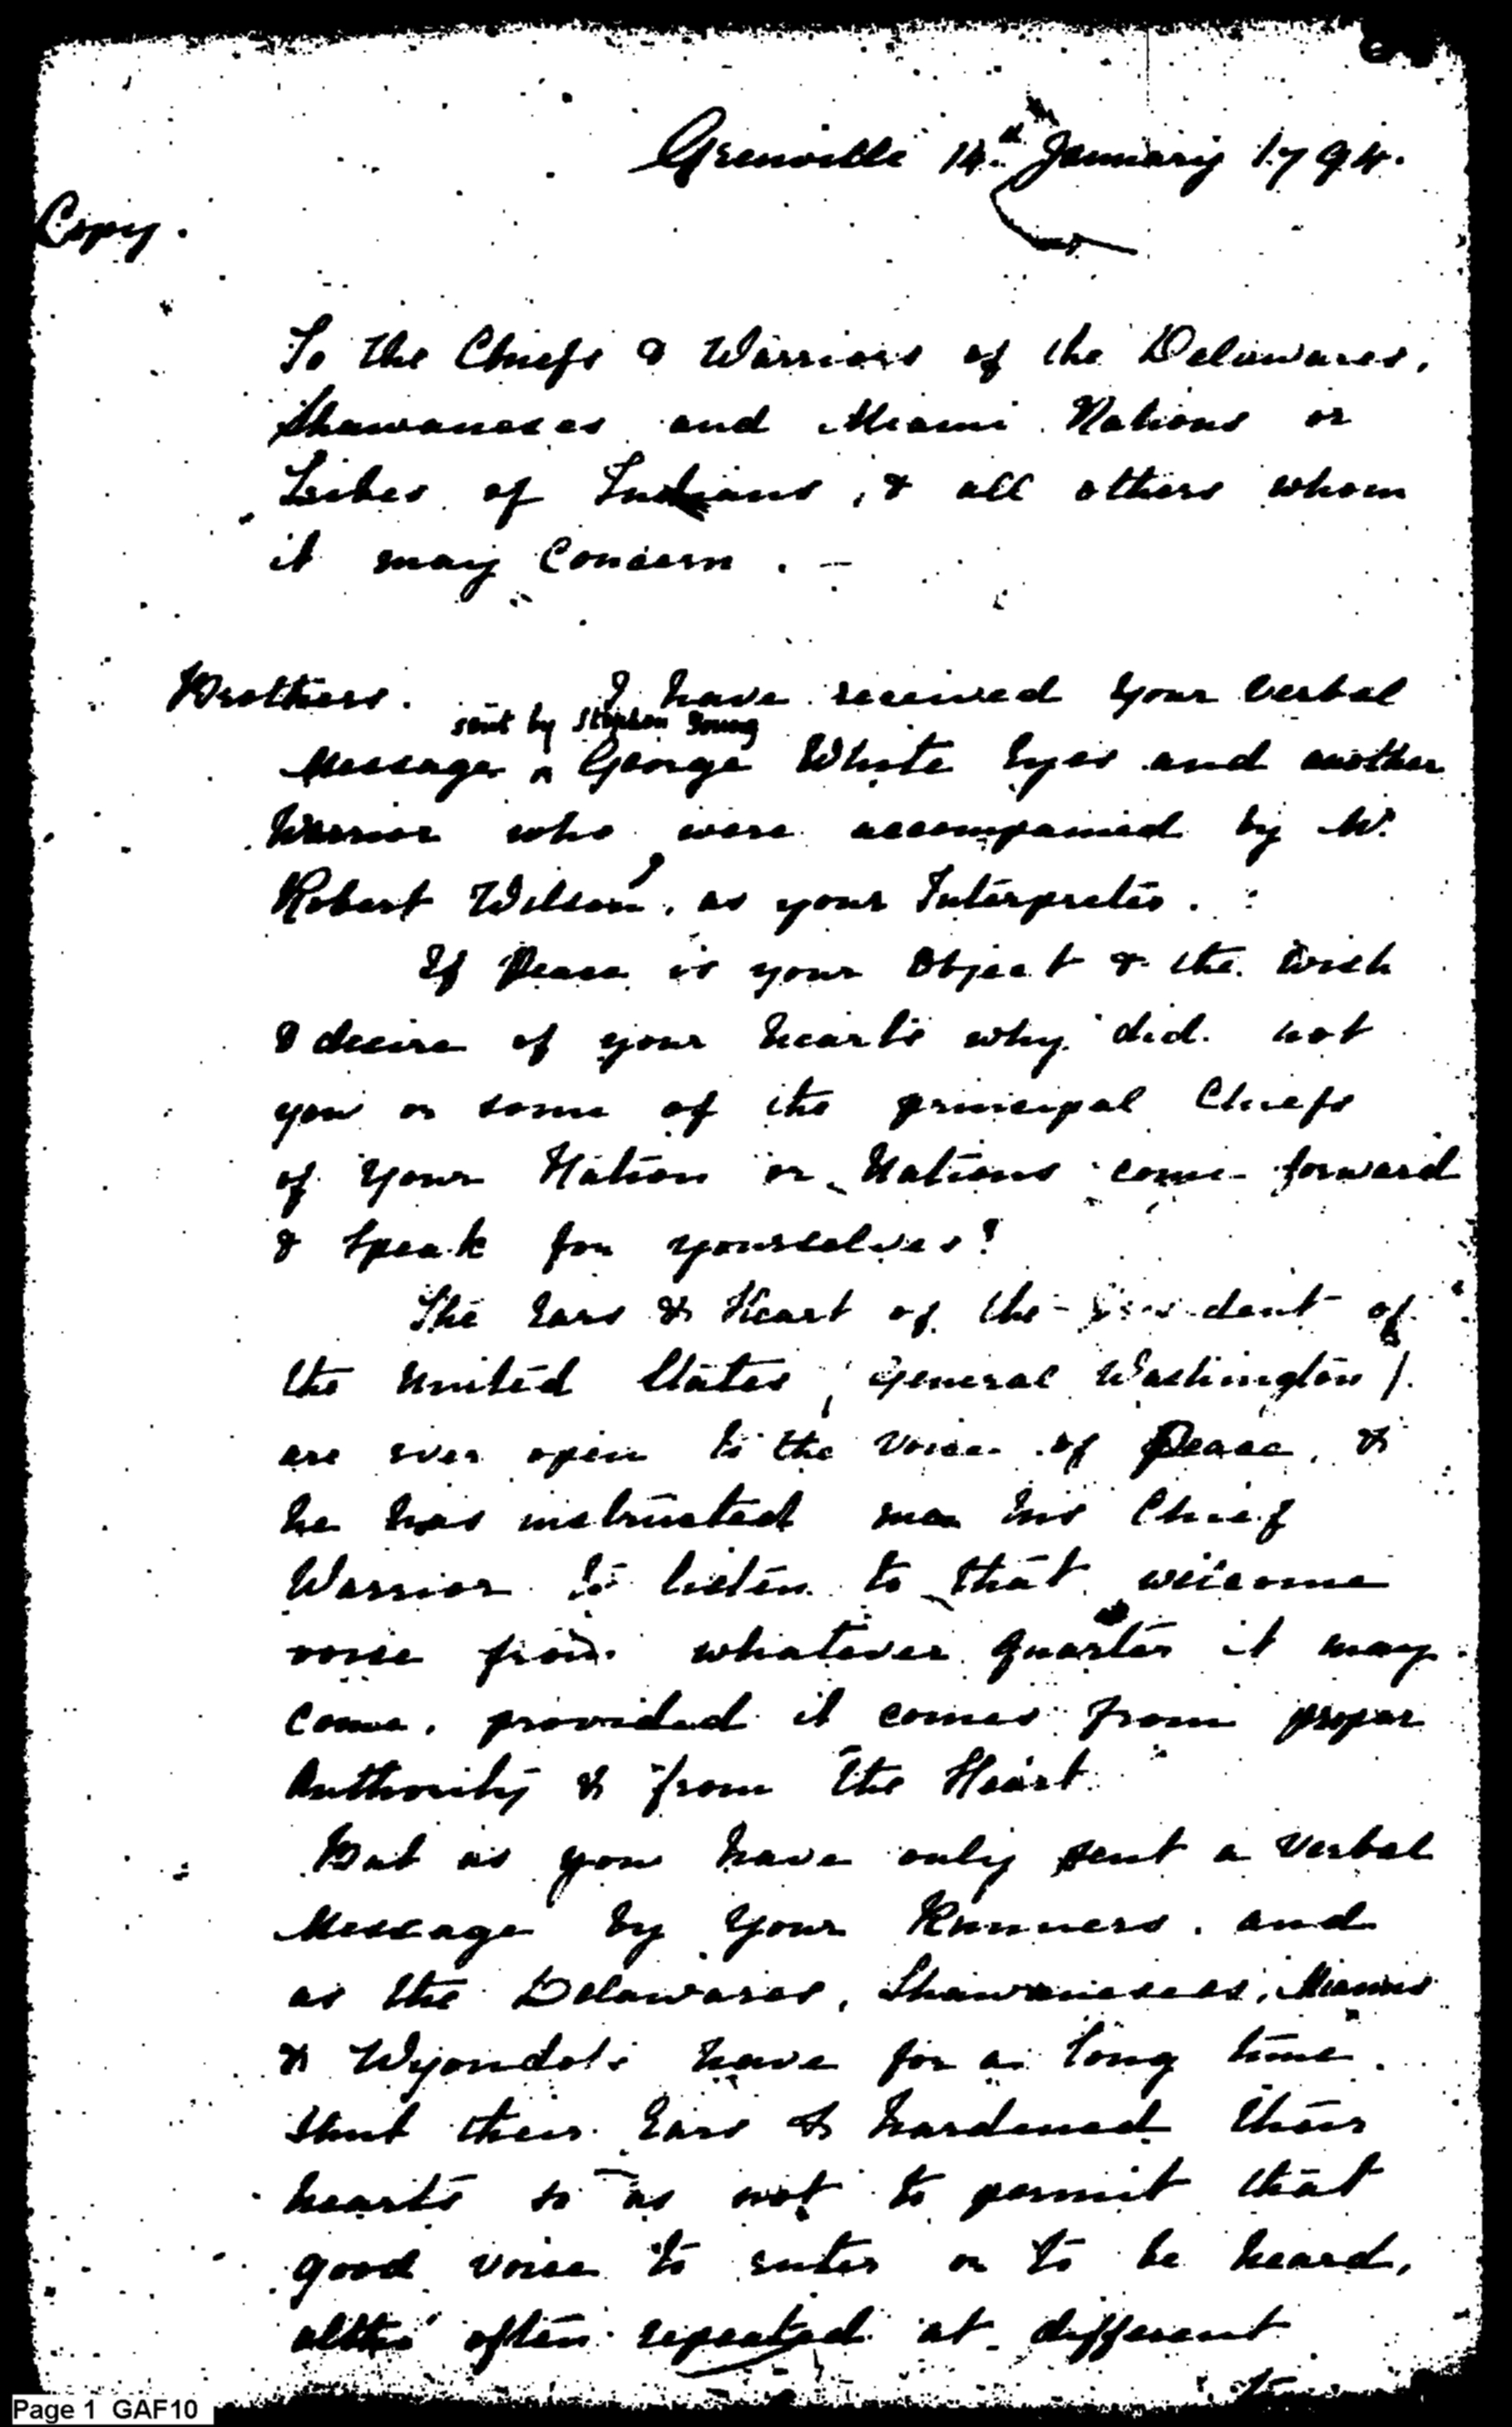 Grenville 14th January 1794.
Copy.
To the Chiefs & Warriors of the Delawares,
Shawanoses and Miami Nations or
Tribes of Indians, & all others whom
it may Concern. -
Brothers. I have received your verbal
sent by Stephen Young
Message ^ George White Eyes and another
Warrior who were accompanied by Mr.
Robert Wilson, as your Interpreter.
If Peace is your Object & the wish
& desire of your hearts why did not
you or some of the principal Chiefs
of your Nation or Nations come forward
& Speak for yourselves?
The Ears & Heart of the President of
the United States, General Washington/.
are ever open to the voice of Peace, &
he has instructed me his Chief
Warrior to listen to that welcome
voice from whatever quarter it may
come, provided it comes from proper
Authority & from the Heart.
But as you have only sent a verbal
Message by your Runners, and
as the Delawares, Shawaneses, Miamis
& Wyondots have for a long time
Shut their Ears & hardened their
hearts so as not to permit that
good voice to enter or to be heard,
altho' often repeated at different
Page 1 GAF10